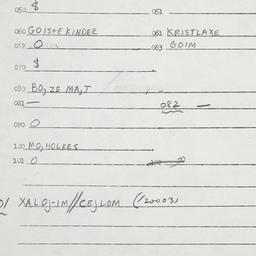 050 $ 051
060 GOISTE KINDER 061 KRISTLAXE
062 O 063 GOIM
070 $
080 BO,ZE MA,T
081 — 082 —
090 O
100 MO,HOLKES
101 O
XALOJ-IM//CEJLOM (/20003)